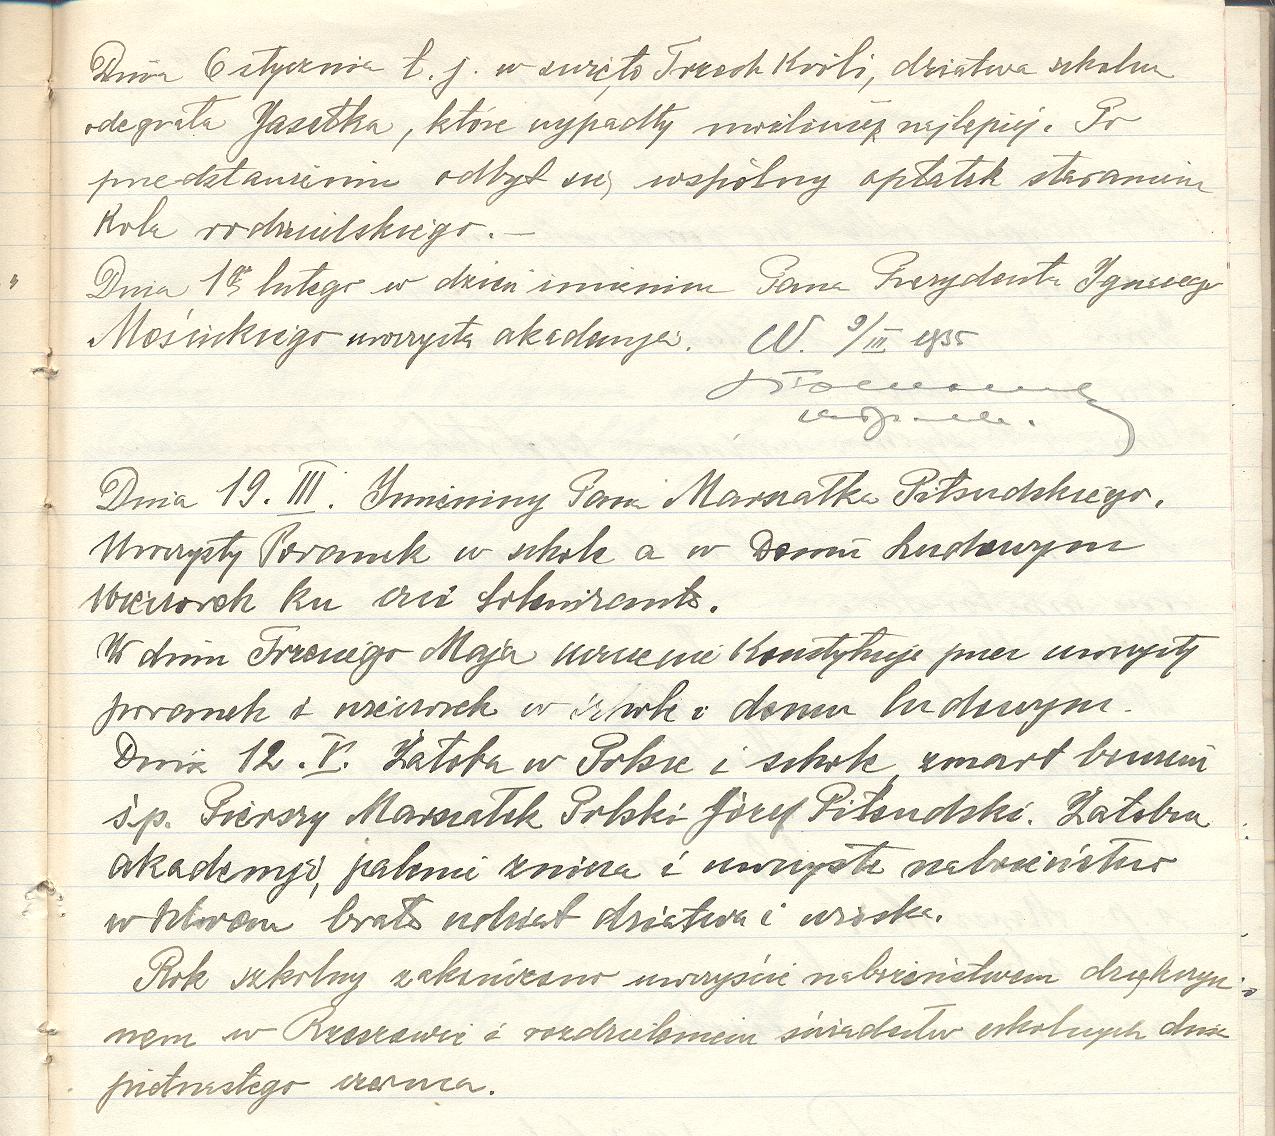 Dnia 6 stycznia t. j. w święto Trzech Króli, dziatwa szkolna
odegrała Jasełka, które wypadły możliwie najlepiej. Po
przedstawieniu odbył się wspólny opłatek staraniem
Koła rodzicielskiego. —
Dnia 1go lutego w dzień imienin Pana Prezydenta Ignacego
Mościckiego uroczysta akademja. W. 9/III 1935
Dnia 19. III. Imieniny Pana Marszałka Piłsudskiego.
Uroczysty Poranek w szkole a w Domu Ludowym
Wieczorek ku czci Solenizanta.
W dniu Trzeciego Maja uczczenie Konstytucji przez uroczysty
poranek i wieczorek w szkole i domu ludowym.
Dnia 12. V. Żałoba w Polsce i szkole, zmarł bowiem
ś.p. Pierszy Marszałek Polski Józef Piłsudski. Żałobna
akademja, palenie znicza i uroczyste nabożeństwo
w którem brała udział dziatwa i wioska.
Rok szkolny zakończono uroczyście nabożeństwem dziękczyn-
nem w Rzeszowie i rozdzieleniem świadectw szkolnych dnia
piętnastego czerwca.